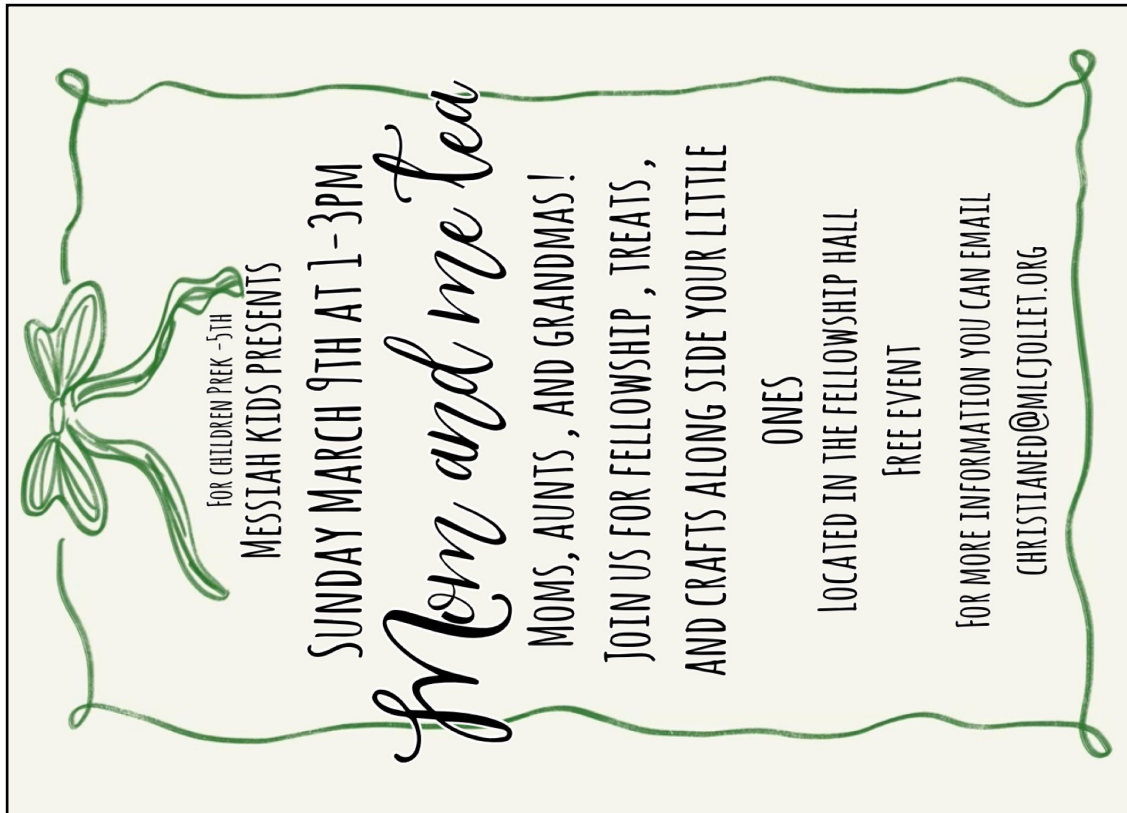 For children PreK -5th
Messiah Kids Presents
Sunday March 9th at 1-3pm
Mom and me tea
Moms, aunts, and grandmas!
Join us for fellowship, treats,
and crafts along side your little
ones
Located in the fellowship hall
Free event
For more information you can email
christianed@mlcjoliet.org